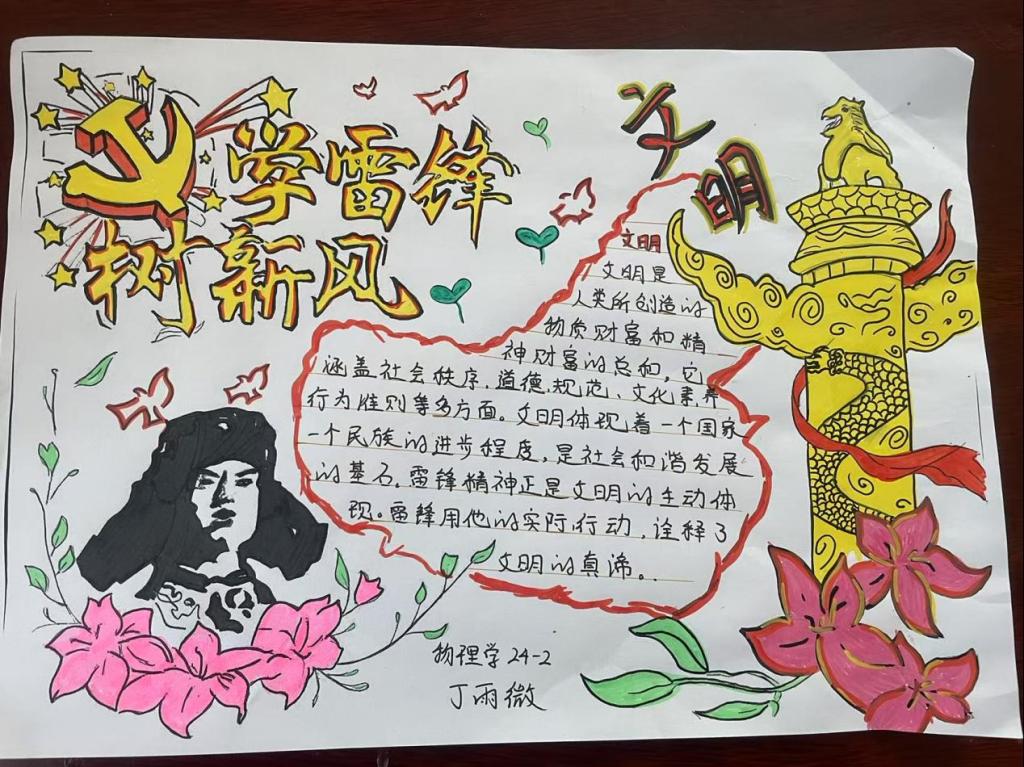 学雷锋
树新风
文明
文明
文明是
人类所创造的
物质财富和精
神财富的总和，它
涵盖社会秩序、道德、规范、文化素养
行为准则等多方面。文明体现着一个国家
一个民族的进步程度，是社会和谐发展
的基石。雷锋精神正是文明的生动体
现。雷锋用他的实际行动，诠释了
文明的真谛。
物理学24-2
丁雨微